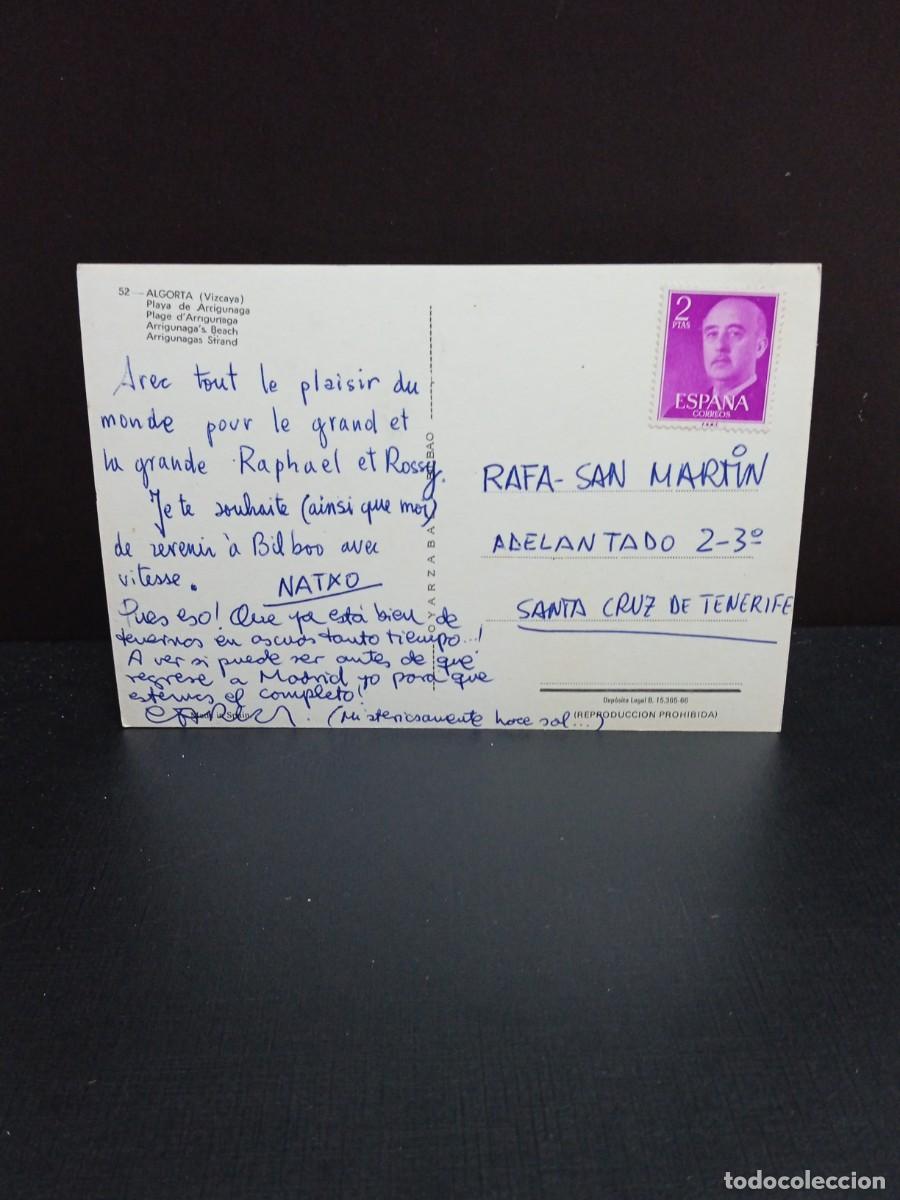 52 — ALGORTA (Vizcaya)
Playa de Arrigunaga
Plage d'Arrigunaga
Arrigunaga's Beach
Arrigunagas Strand
Avec tout le plaisir du
monde pour le grand et
la grande Raphael et Rossy.
Je te souhaite (ainsi que moi)
de revenir à Bilboo avec
vitesse. NATXO
Pues eso! Que ya está bien de
tenernos en ascuas tanto tiempo..!
A ver si puede ser antes de que
regrese a Madrid yo para que
estemos el completo!
(Misteriosamente hace sol...)
Made in Spain
OYARZABAL BILBAO
2
PTAS
ESPAÑA
CORREOS
RAFA - SAN MARTIN
ADELANTADO 2-3º
SANTA CRUZ DE TENERIFE
Depósito Legal B. 15.395-66
(REPRODUCCION PROHIBIDA)
todocoleccion